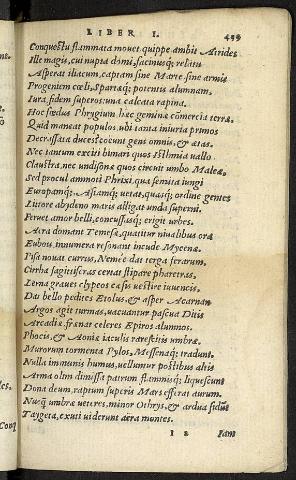 LIBER I. 499
Conquestu flammata mouet quippe ambit Atrides
Ille magis, cui nupta domi, facinusq; relatu
Asperat iliacum, captam sine Marte sine armis
Progeniem cœli, Spartæq; potentis alumnam.
Iura, fidem superos: una calcata rapina.
Hoc fœdus Phrygium hæc geminæ cōmercia terræ.
Quid maneat populos, ubi tanta iniuria primos
Degrassata duces: coeunt gens omnis, & ætas.
Nec tantum exciti bimari quos Isthmia uallo
Claustra, nec undisonæ quos circuit umbo Maleæ.
Sed procul admoti Phrixi, qua semita iungi
Europamq; Asiamq; uetat, quasq; ordine gentes
Littore abydeno maris alligat unda superni.
Feruet amor belli, concussasq; erigit urbes.
Aera domant Temesæ, quatitur niualibus ora
Eubois, innumera resonant incude Mycenæ.
Pisa nouat currus, Nemee dat terga ferarum.
Cirrha sagittiferas certat stipare pharetras.
Lerna graues clypeos cæsis uestire iuuencis.
Dat bello pedites Etolus, & asper Acarnan
Argos agit turmas, uacuantur pascua Ditis
Arcadiæ, frænat celeres Epiros alumnos.
Phocis, & Aoniæ iaculis rarestitis umbræ.
Murorum tormenta Pylos, Messenaq; tradunt.
Nulla immunis humus, uelluntur postibus altis
Arma olim dimissa patrum flammisq; liquescunt
Dona deum, raptum superis Mars efferat aurum.
Nusq; umbræ ueteres, minor Othrys, & ardua sidunt
Taygeta, exuti uiderunt aera montes.
I 2 Iam